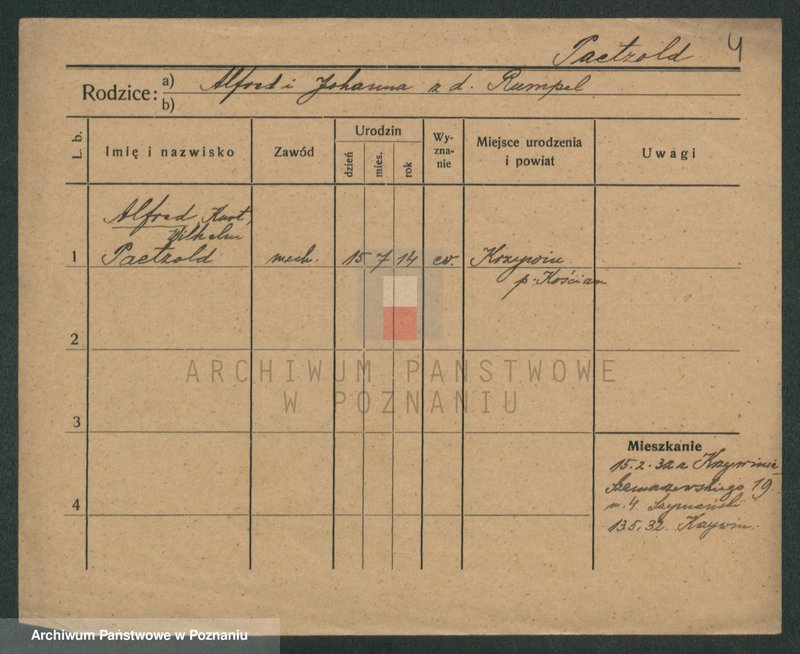 Paetzold 4
Rodzice: a) Alfred i Johanna z d. Rumpel
b)
L. b.
Imię i nazwisko
Zawód
Urodzin
dzień
mies.
rok
Wy-
zna-
nie
Miejsce urodzenia
i powiat
Uwagi
Alfred, Kurt,
Wilhelm
1 Paetzold mech. 15 7 14 ew. Krzywin
p. Kościan
2
ARCHIWUM PAŃSTWOWE
W POZNANIU
3
Mieszkanie
15.2.32 z Krzywinia
Szamarzewskiego 19
m. 4 Szymański
4
13.5.32. Krzywin.
Archiwum Państwowe w Poznaniu